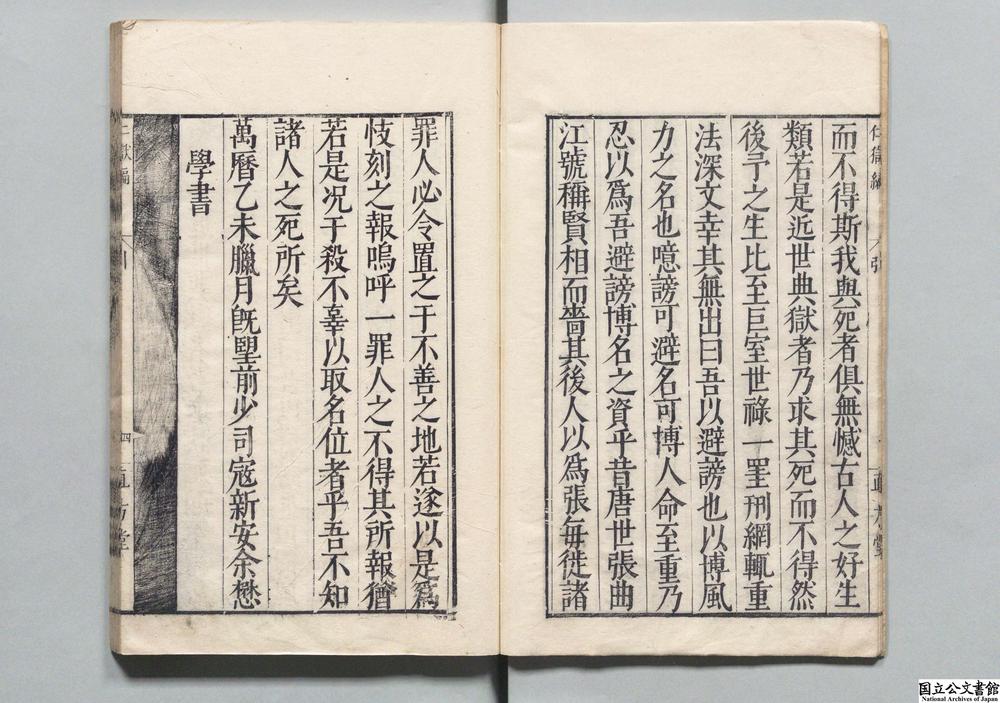 而不得斯我與死者俱無憾古人之好生
類若是近世典獄者乃求其死而不得然
後予之生比至巨室世祿一罣刑網輒重
法深文幸其無出曰吾以避謗也以博風
力之名也噫謗可避名可博人命至重乃
忍以爲吾避謗博名之資乎昔唐世張曲
江號稱賢相而嗇其後人以爲張每徙諸
罪人必令置之于不善之地若遂以是爲
忮刻之報嗚呼一罪人之不得其所報猶
若是況于殺不辜以取名位者乎吾不知
諸人之死所矣
萬曆乙未臘月旣望前少司寇新安余懋
學書
仁獄編
四
直方堂
国立公文書館
National Archives of Japan